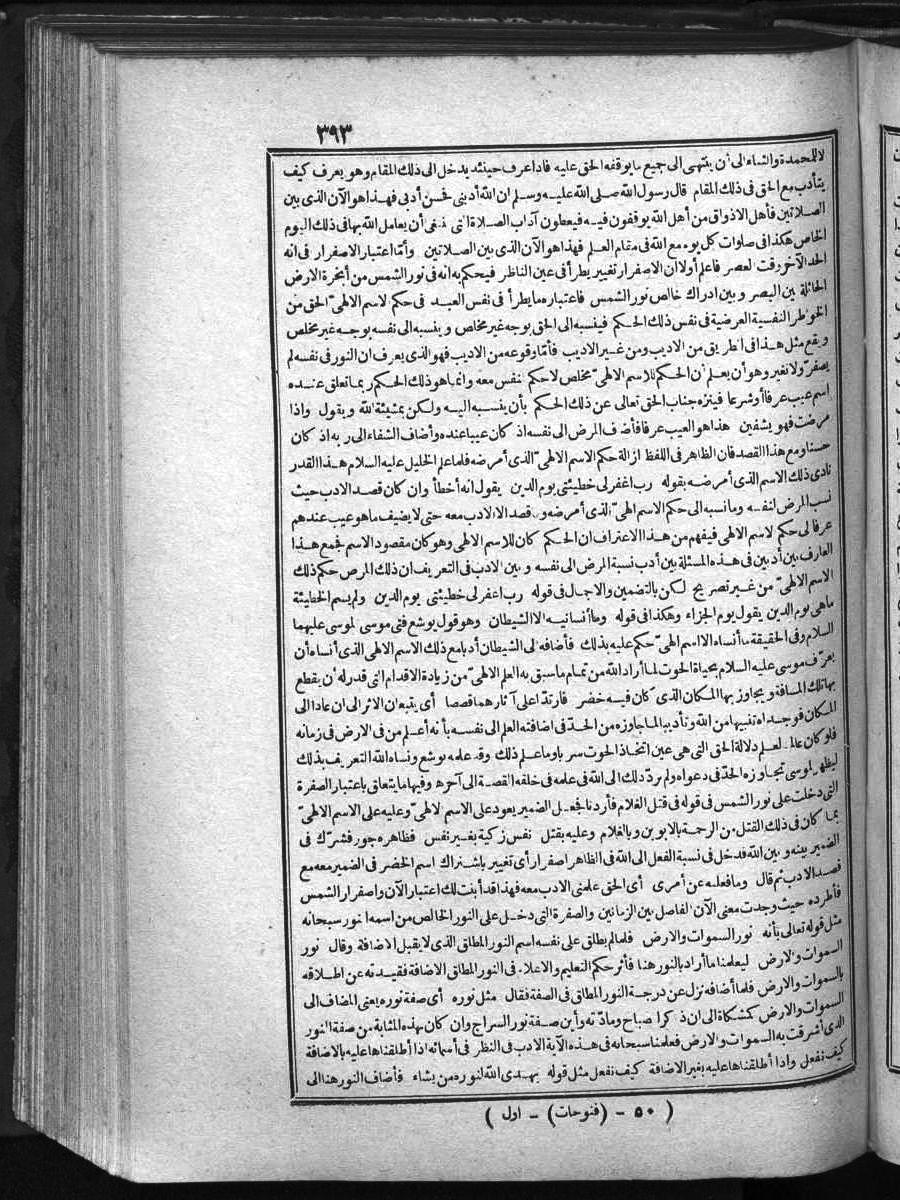 ٣٩٣
للمحمدة والثناء الى أن ينتهى الى جميع ما يوقفه الحق عليه فاذا عرف حينئذ يدخل الى ذلك المقام وهو يعرف كيف
يتأدب مع الحق فى ذلك المقام قال رسول الله صلى الله عليه وسلم ان الله أدبنى فحسن أدبى فهذا هو الآن الذى بين
الصلاتين فأهل الاذواق من أهل الله يوقفون فيه فيعطون آداب الصلاة التى ينبغى أن يعامل الله بها فى ذلك اليوم
الخاص هكذا فى صلوات كل يوم مع الله فى مقام العلم فهذا هو الآن الذى بين الصلاتين وأما اعتبار الاصفرار فى انه
الحد الآخر وقت العصر فاعلم أولا ان الاصفرار تغيير يطرأ فى عين الناظر فيحكم به انه فى نور الشمس من أبخرة الارض
الحائلة بين البصر وبين ادراك خالص نور الشمس فاعتباره ما يطرأ فى نفس العبد فى حكم الاسم الالهىّ الحق من
الخواطر النفسية العرضية فى نفس ذلك الحكم فينسبه الى الحق بوجه غير مخلص وينسبه الى نفسه بوجه غير مخلص
ويقع مثل هذا فى الطريق من الاديب ومن غير الاديب فأمّا وقوعه من الاديب فهو الذى يعرف ان النور فى نفسه لم
يصفرّ ولا تغير وهو أن يعلم أن الحكم للاسم الالهىّ مخلص لا حكم لنفس معه وانما هو ذلك الحكم ربما تعلق عنده
اسم عيب عرفا أو شرعا فينزه جناب الحق تعالى عن ذلك الحكم بأن ينسبه اليه ولكن بمشيئة الله ويقول واذا
مرضت فهو يشفين هذا هو العيب عرفا فأضاف المرض الى نفسه اذ كان عيبا عنده وأضاف الشفاء الى ربه اذ كان
حسنا ومع هذا القصد فان الظاهر فى اللفظ ازالة حكم الاسم الالهىّ الذى أمرضه فلما علم الخليل عليه السلام هذا القدر
نادى ذلك الاسم الذى أمرضه بقوله رب اغفر لى خطيئتى يوم الدين يقول انه أخطأ وان كان قصد الادب حيث
نسب المرض لنفسه وما نسبه الى حكم الاسم الهىّ الذى أمرضه وما قصد الا الادب معه حتى لا يضيف ما هو عيب عندهم
عرفا لى حكم الاسم الالهى فيفهم من هذا الاعتراف ان الحكم كان للاسم الالهى وهو كان مقصود الاسم فجمع هذا
العارف بين أدبين فى هذه المسئلة بين أدب نسبة المرض الى نفسه وبين الادب فى التعريف ان ذلك المرض حكم ذلك
الاسم الالهىّ من غير تصريح لكن بالتضمين والاجمال فى قوله رب اغفر لى خطيئتى يوم الدين ولم يسم الخطيئة
ما هى يوم الدين يقول يوم الجزاء وهكذا فى قوله وما أنسانيه الا الشيطان وهو قول يوشع فتى موسى لموسى عليهما
السلام وفى الحقيقة ما أنساه الا اسم الهىّ حكم عليه بذلك فأضافه الى الشيطان أدبا مع ذلك الاسم الالهى الذى أنساه أن
يعرّف موسى عليه السلام بحياة الحوت لما أراد الله من تمام ما سبق به العلم الالهىّ من زيادة الاقدام التى قدر له أن يقطع
بها تلك المسافة ويجاوز بها المكان الذى كان فيه خضر فارتدّا على آثارهما قصصا أى يتبعان الاثر الى ان عادا الى
المكان فوجداه تنبيها من الله وتأديبا لما جاوزه من الحدّ فى اضافته العلم الى نفسه بأنه أعلم من فى الارض فى زمانه
فلو كان عالما لعلم دلالة الحق التى هى عين اتخاذ الحوت سربا وما علم ذلك وقد علمه يوشع ونساه الله التعريف بذلك
ليظهر لموسى تجاوزه الحدّ فى دعواه ولم يردّ ذلك الى الله فى علمه فى خلقه القصة الى آخرها وفيها ما يتعلق باعتبار الصفرة
التى دخلت على نور الشمس فى قوله فى قتل الغلام فأردنا فجعل الضمير يعود على الاسم الالهىّ وعليه على الاسم الالهىّ
بما كان فى ذلك القتل من الرحمة بالابوين وبالغلام وعليه بقتل نفس زكية بغير نفس فظاهره جور فشرّك فى
الضمير بينه وبين الله فدخل فى نسبة الفعل الى الله فى الظاهر اصفرار أى تغيير باشتراك اسم الخضر فى الضمير معه مع
قصد الادب ثم قال وما فعلته عن أمرى أى الحق علمنى الادب معه فهذا قد أبنت لك اعتبار الآن واصفرار الشمس
فأطرده حيث وجدت معنى الآن الفاصل بين الزمانين والصفرة التى دخل على النور الخالص من اسمه النور سبحانه
مثل قوله تعالى بأنه نور السموات والارض فلما لم يطلق على نفسه اسم النور المطلق الذى لا يقبل الاضافة وقال نور
السموات والارض ليعلمنا ما أراد بالنور هنا فأثر حكم التعليم والاعلام فى النور المطلق الاضافة فقيدته عن اطلاقه
بالسموات والارض فلما أضافه نزل عن درجة النور المطلق فى الصفة فقال مثل نوره أى صفة نوره يعنى المضاف الى
السموات والارض كمشكاة الى ان ذكر المصباح ومادّته وأين صفة نور السراج وان كان بهذه المثابة من صفة النور
الذى أشرقت به السموات والارض فعلمنا سبحانه فى هذه الآية الادب فى النظر فى أسمائه اذا أطلقناها عليه بالاضافة
كيف نفعل واذا أطلقناها عليه بغير الاضافة كيف نفعل مثل قوله يهدى الله لنوره من يشاء فأضاف النور هنا الى
( ٥٠ - (فتوحات) - اول )